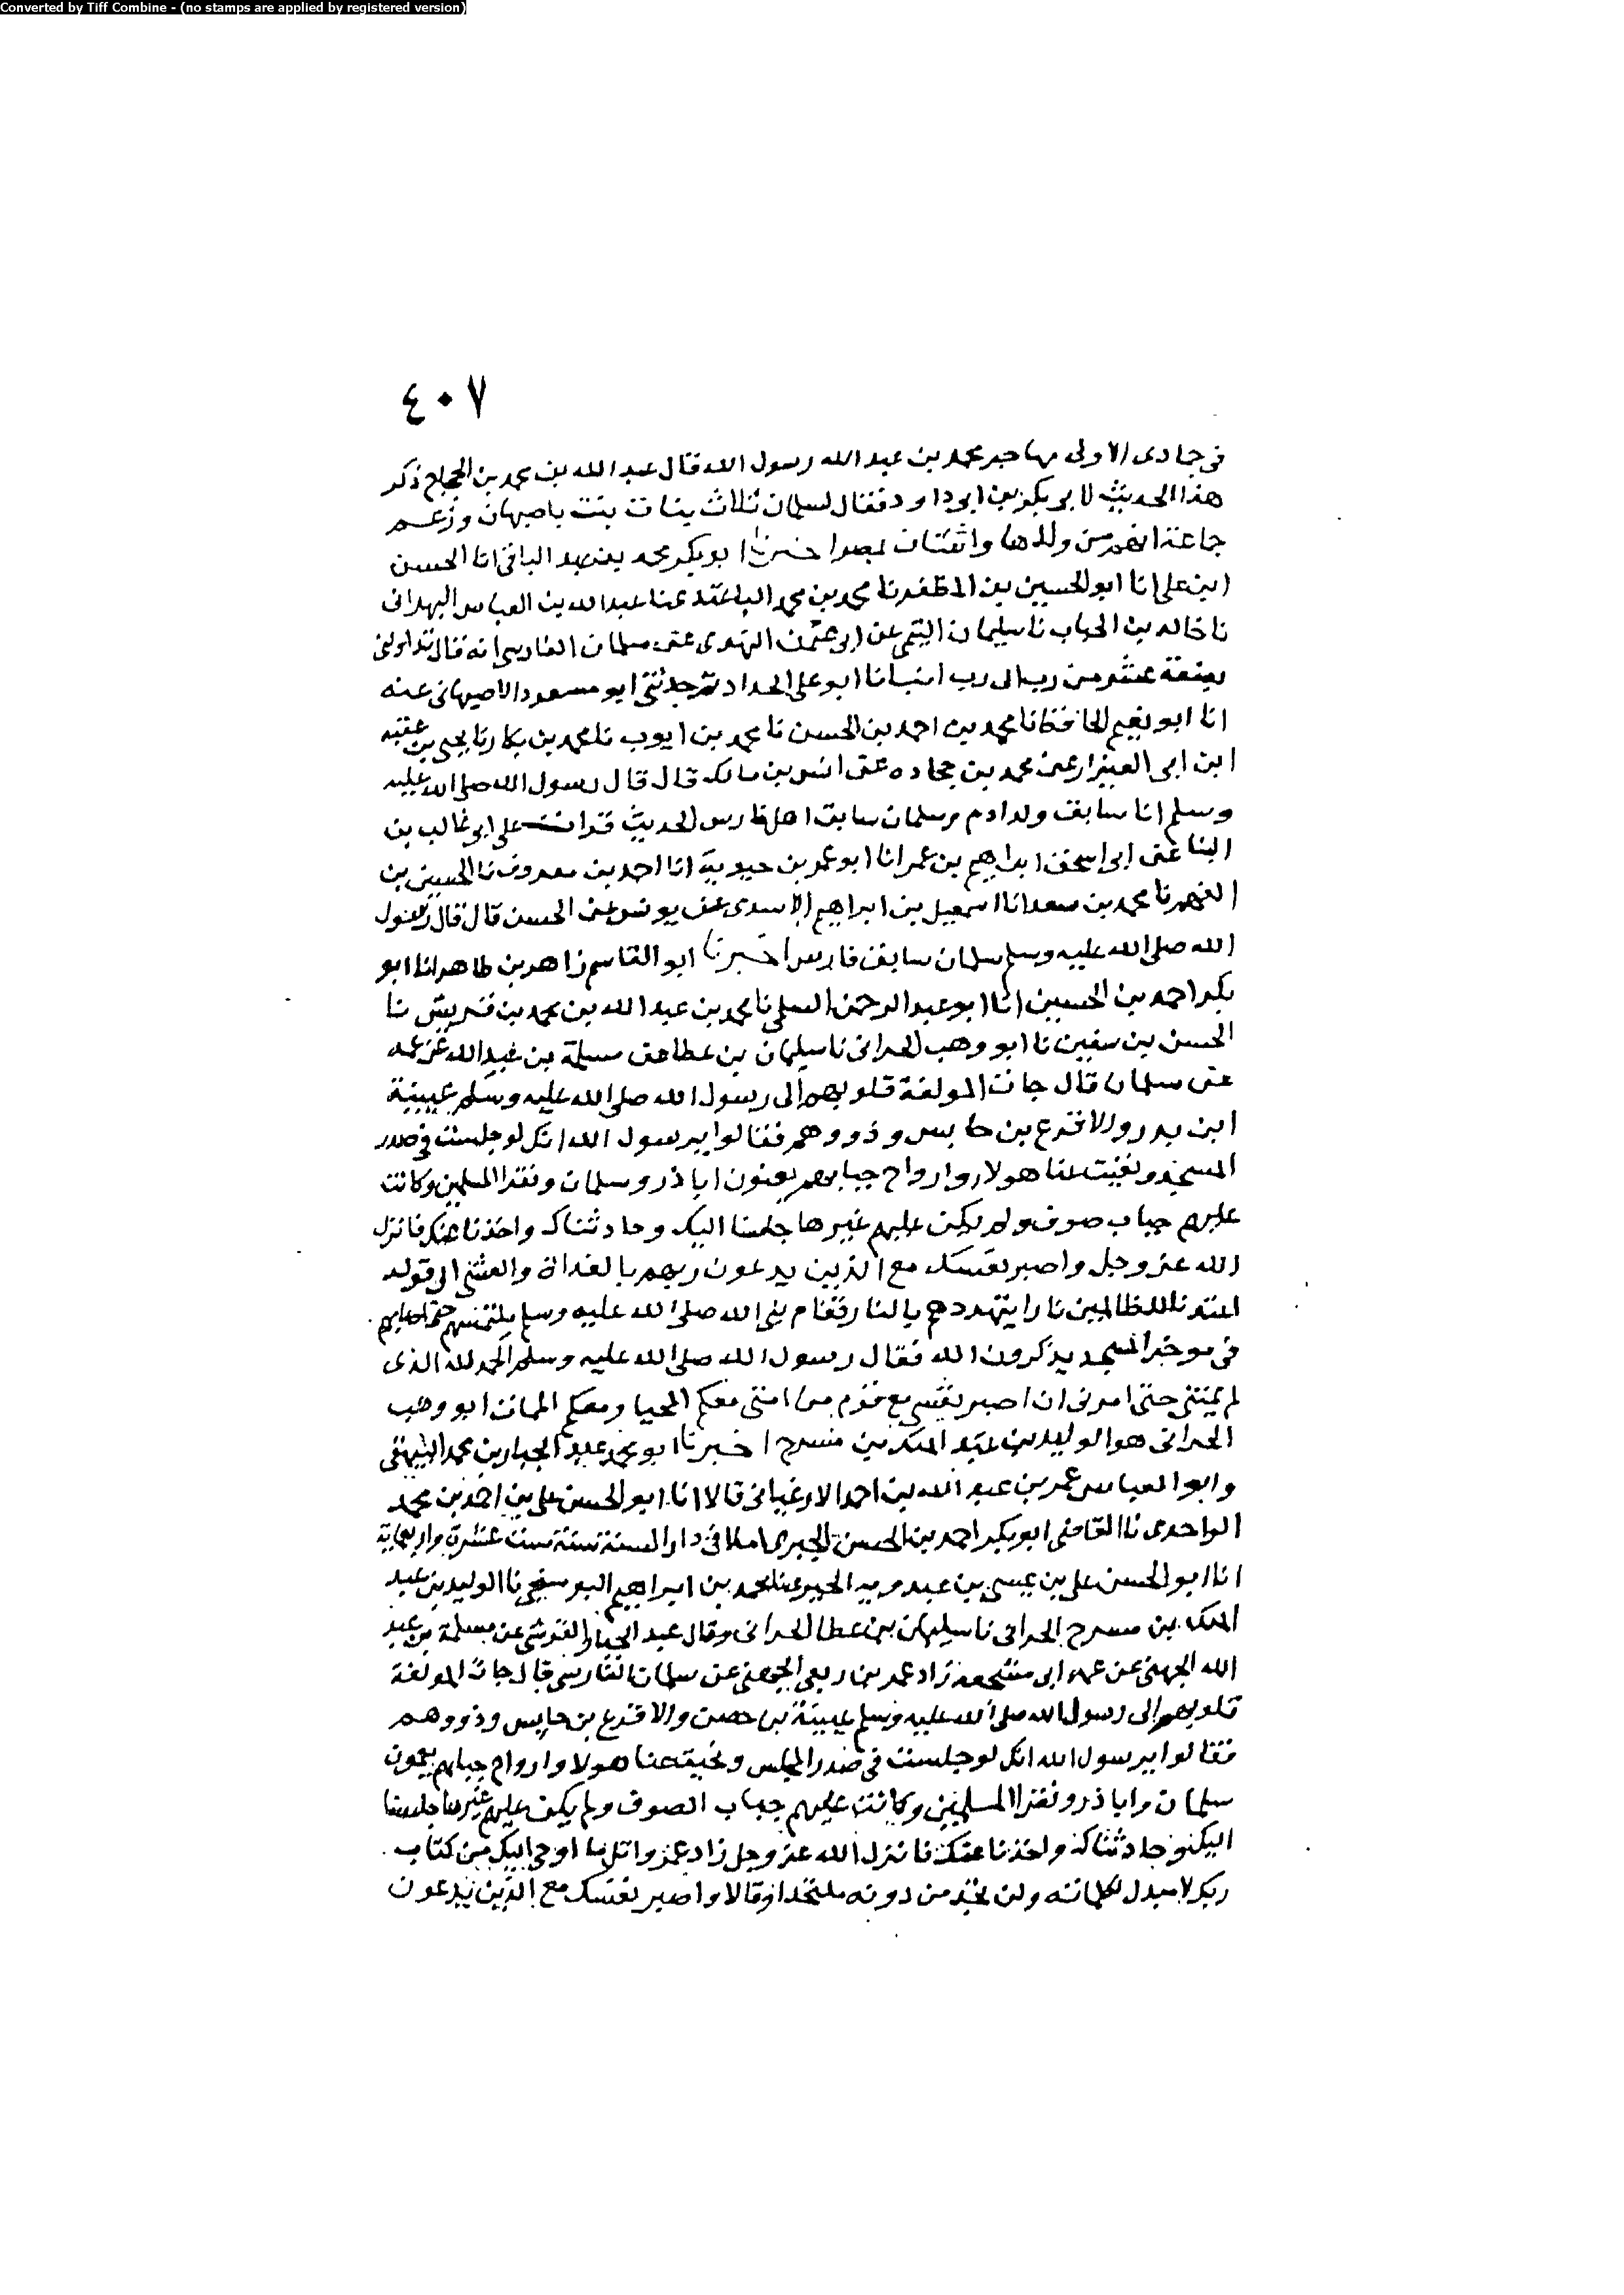 Converted by Tiff Combine - (no stamps are applied by registered version)
٤٠٧
في جمادى الاولى مهاجر محمد بن عبد الله رسول الله قال عبد الله بن محمد بن الحجاج ذكر
هذا الحديث لابي بكر بن ابي داود فقال لسلمان ثلاث بنات بنت باصبهان وزعم
جماعة انهم من ولدها واثنتان بمصر اخبرنا ابو بكر محمد بن عبد الباقي انا الحسن
ابن علي انا ابو الحسين بن المظفر نا محمد بن محمد الباغندي نا عبد الله بن العباس البهراني
نا خالد بن الحباب نا سليمان التيمي عن ابي عثمن النهدي عن سلمان الفارسي انه قال تداولني
بضعة عشر من رب الى رب انبانا ابو علي الحداد ثم حدثني ابو مسعود الاصبهاني عنه
انا ابو نعيم الحافظ نا محمد بن احمد بن الحسن نا محمد بن ايوب نا محمد بن بكار نا يحيى بن عقبة
ابن ابي العيزار عن محمد بن جحاده عن انس بن مالك قال قال رسول الله صلى الله عليه
وسلم انا سابق ولد ادم وسلمان سابق اهل فارس الحديث قرات على ابي غالب بن
البنا عن ابي اسحق ابراهيم بن عمر انا ابو عمر بن حيوية انا احمد بن معروف نا الحسين بن
الفهم نا محمد بن سعد انا اسمعيل بن ابراهيم الاسدي عن يونس عن الحسن قال قال رسول
الله صلى الله عليه وسلم سلمان سابق فارس اخبرنا ابو القاسم زاهر بن طاهر انا ابو
بكر احمد بن الحسين انا ابو عبد الرحمن السلمي نا محمد بن عبد الله بن محمد بن قريش نا
الحسن بن سفين نا ابو وهب الحراني نا سليمان بن عطا عن مسلمة بن عبد الله عن عمه
عن سلمان قال جات المولفة قلوبهم الى رسول الله صلى الله عليه وسلم عيينة
ابن بدر والاقرع بن حابس وذووهم فقالوا يرسول الله انك لو جلست في صدر
المسجد ونفيت عنا هولا وارواح جبابهم يعنون ابا ذر وسلمان وفقرا المسلمين وكانت
عليهم جباب صوف ولم يكن عليهم غيرها جلسنا اليك وحادثناك واخذنا عنك فانزل
الله عز وجل واصبر نفسك مع الذين يدعون ربهم بالغداة والعشي الى قوله
اعتدنا للظالمين نارا يتهددهم بالنار فقام نبي الله صلى الله عليه وسلم يلتمسهم حتى اصابهم
في موخر المسجد يذكرون الله فقال رسول الله صلى الله عليه وسلم الحمد لله الذي
لم يمتني حتى امرني ان اصبر نفسي مع قوم من امتي معكم المحيا ومعكم الممات ابو وهب
الحراني هو الوليد بن عبد الملك بن مسرح اخبرنا ابو محمد عبد الجبار بن محمد البيهقي
وابو العباس عمر بن عبد الله بن احمد الارغياني قالا انا ابو الحسن علي بن احمد بن محمد
الواحدي نا القاضي ابو بكر احمد بن الحسن الحيري املا في دار السنة سنة ست عشرة واربعماية
انا ابو الحسن علي بن عيسى بن عبدويه الحيري نا محمد بن ابراهيم البوسنجي نا الوليد بن عبد
الملك بن مسرح الحراني نا سليمان بن عطا الحراني وقال عبد الجبار القرشي عن مسلمة بن عبد
الله الجهني عن عمه ابي مشجعة زاد عمر بن ربعي الجهني عن سلمان الفارسي قال جات المولفة
قلوبهم الى رسول الله صلى الله عليه وسلم عيينة بن حصن والاقرع بن حابس وذووهم
فقالوا يرسول الله انك لو جلست في صدر المجلس ونحيت عنا هولا وارواح جبابهم يعنون
سلمان وابا ذر وفقرا المسلمين وكانت عليهم جباب الصوف ولم يكن عليهم غيرها جلسنا
اليك وحادثناك واخذنا عنك فانزل الله عز وجل زاد عمر واتل ما اوحي اليك من كتاب
ربك لا مبدل لكلماته ولن تجد من دونه ملتحدا وقالا واصبر نفسك مع الذين يدعون